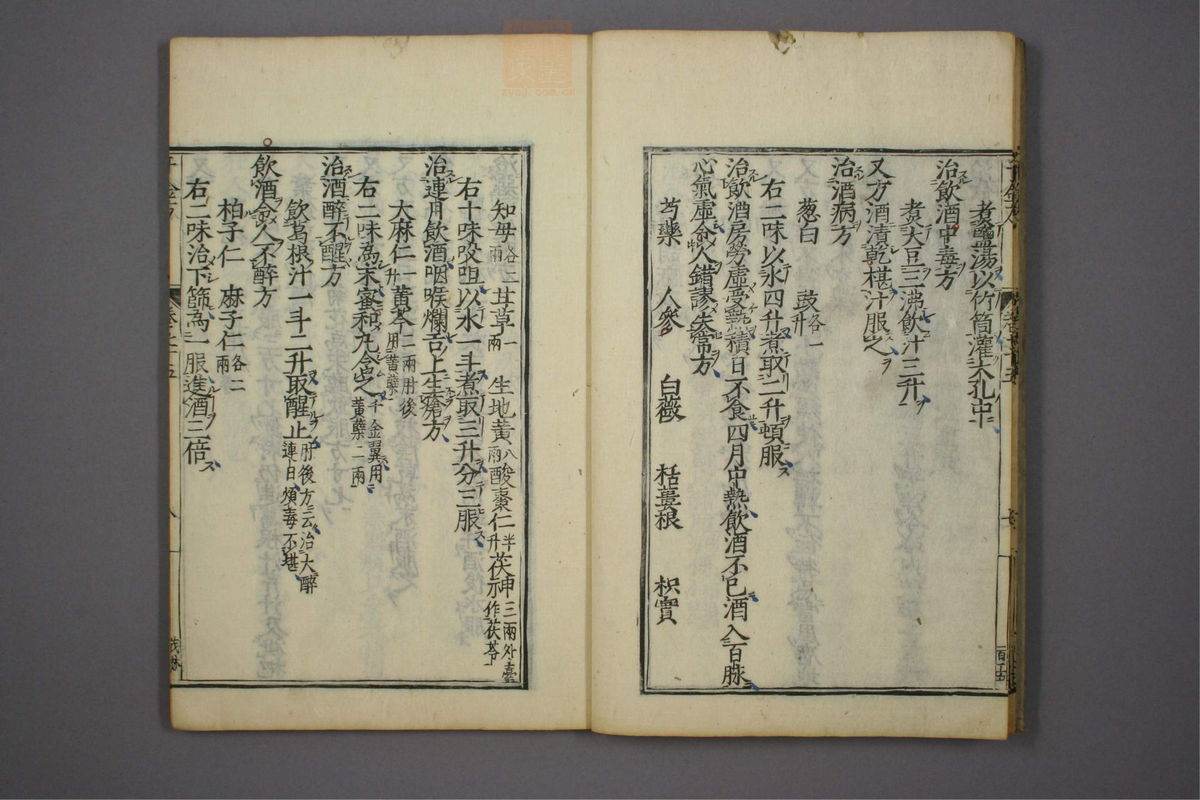 煮鹽湯以竹筒灌大孔中
治飲酒中毒方
煮大豆三沸飲汁三升
又方酒漬乾椹汁服之
治酒病方
葱白 豉各一升
右二味以水四升煮取二升頓服
治飲酒房勞虛受熱積日不食四月中熱飲酒不已酒入百脉
心氣虛令人錯謬失常方
芍藥 人參 白薇 枯蔞根 枳實
知母各二兩 甘草一兩 生地黃八兩 酸棗仁半升 茯神三兩外臺作茯苓
右十味㕮咀以水一斗煮取三升分三服
治連月飲酒咽喉爛舌上生瘡方
大麻仁一升 黃芩二兩肘後用黃蘗
右二味為末蜜和丸含之千金翼用黃蘗二兩
治酒醉不醒方
飲葛根汁一斗二升取醒止肘後方云治大醉連日煩毒不堪
飲酒令人不醉方
柏子仁 麻子仁各二兩
右二味治下篩為一服進酒三倍